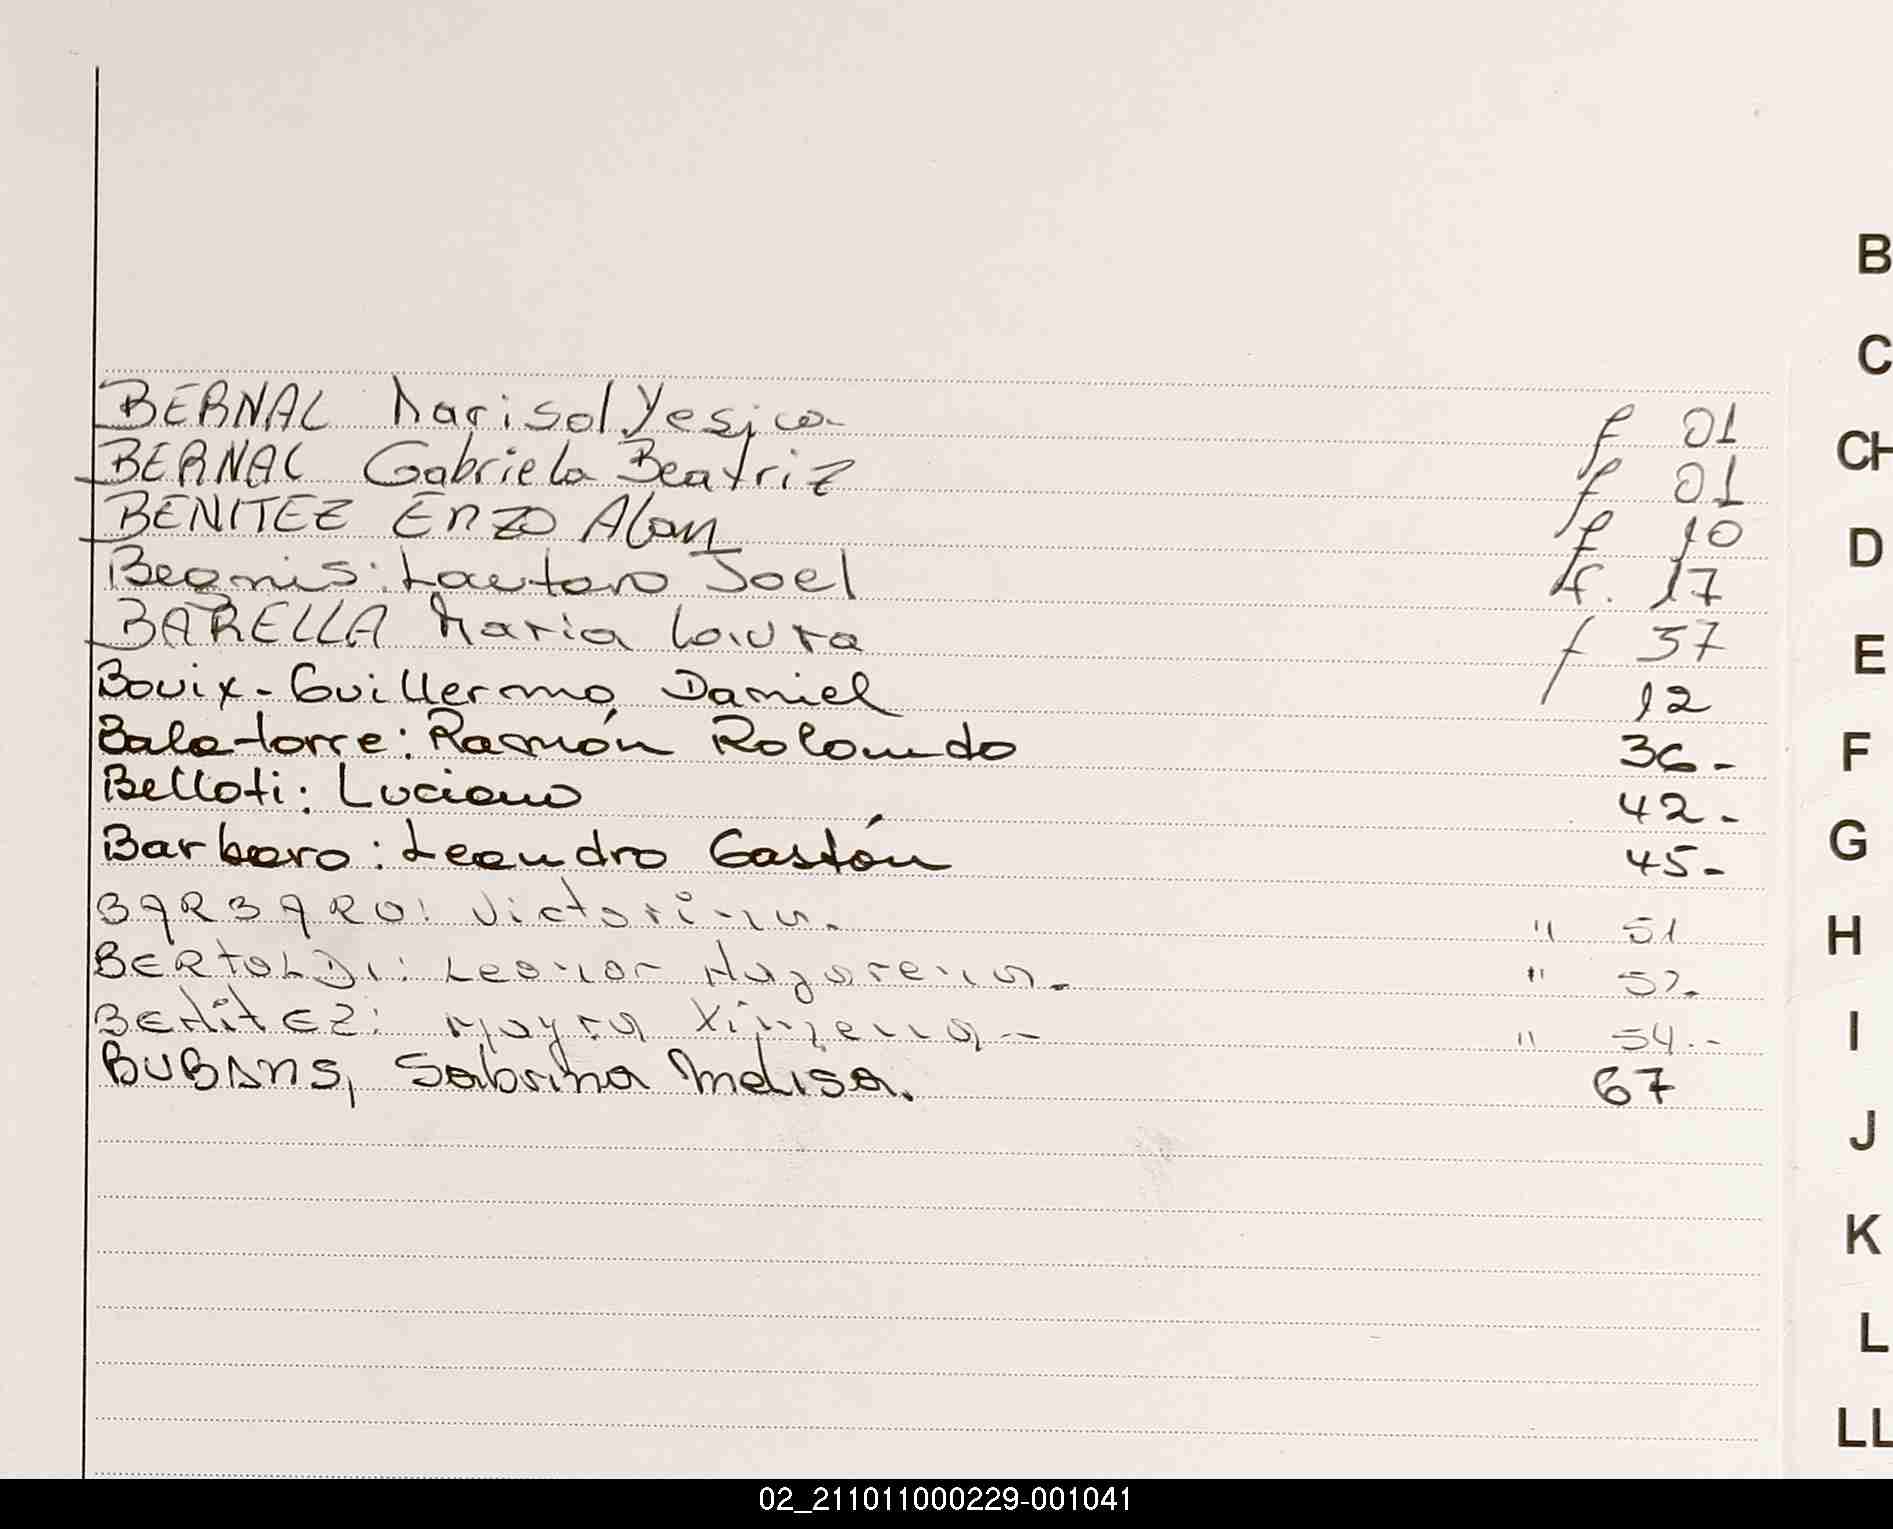 B
C
CH
D
E
F
G
H
I
J
K
L
LL
BERNAL Marisol Yesica f 01
BERNAL Gabriela Beatriz f 01
BENITEZ Enzo Alan f 10
Begnis: Lautaro Joel f. 17
BARELLA Maria Laura f 37
Bouix - Guillermo Daniel 12
Balatorre: Ramón Rolando 36-
Belloti: Luciano 42-
Barbaro: Leandro Gastón 45-
BARBARO: Victorina. " 51
BERTOLDI: Leonor Nazarena. " 52.
BENITEZ: Mayra Ximena - " 54.-
BUBANS, Sabrina Melisa. 67
02_211011000229-001041